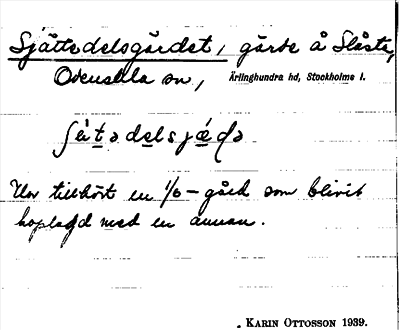 Sjättedelsgärdet, gärde å Slåsta,
Odensala sn, Ärlinghundra hd, Stockholms l.
Har tillhört en 1/6-gård som blivit
hoplagd med en annan.
KARIN OTTOSSON 1939.